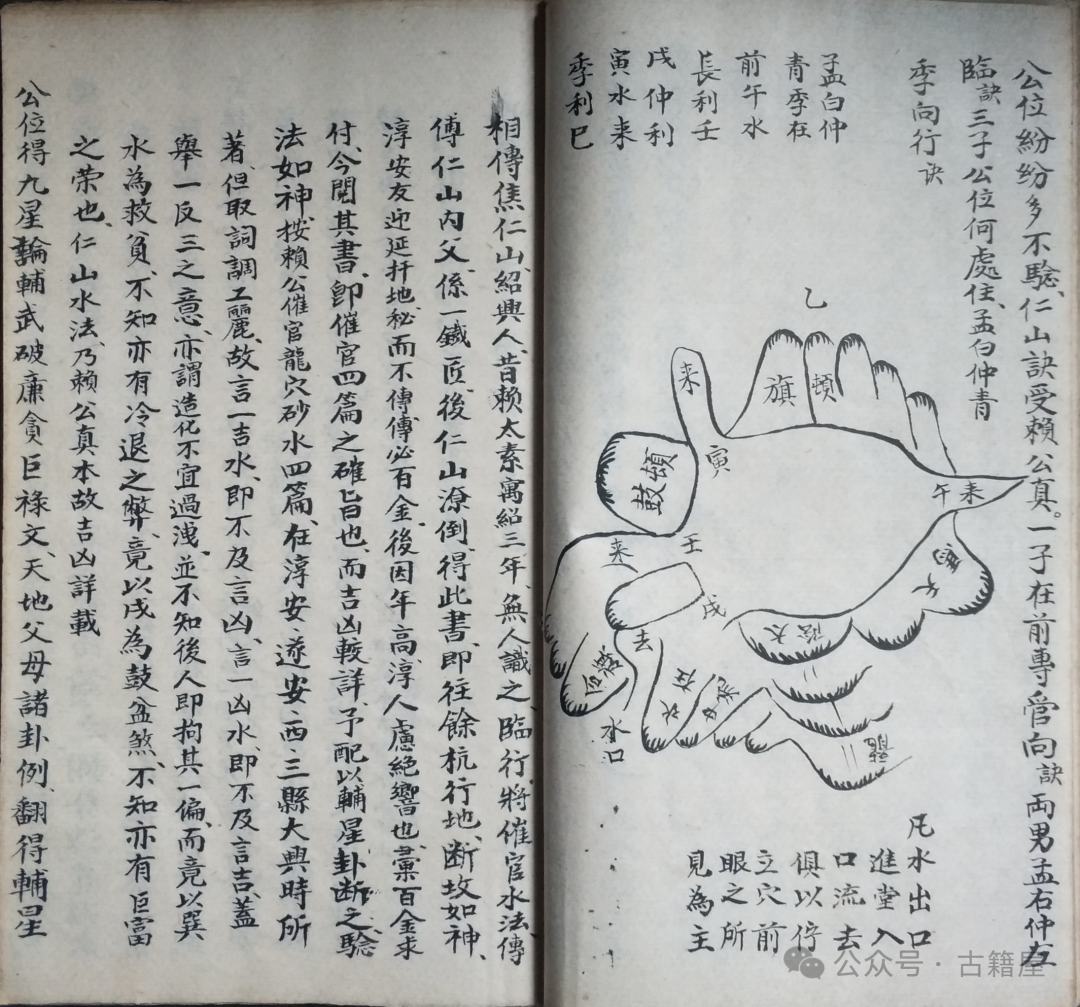 公位紛紛多不驗、仁山訣受賴公真。一子在前專管向訣両男孟右仲左
臨訣三子公位何處住、孟白仲青
季向行訣
孟白仲
青季在
前午水
長利壬
戌仲利
寅水来
季利巳
乙
旗
頓
来
寅
頓
鼓
来午
壬
来
戌
去
太陰
水口
龍
凡水出口
進堂入
口流去
俱以停
立穴前
眼之所
見為主
相傳焦仁山、紹興人、昔賴太素寓紹三年、無人識之、臨行、將催官水法傳
傅仁山内父、係一鐵匠、後仁山潦倒、得此書、即往餘杭行地、断坟如神、
淳安友迎延扦地、秘而不傳、傳必百金、後因年高、淳人慮絕響也、彙百金求
付、今閱其書、即催官四篇之確旨也、而吉凶較詳、予配以輔星卦断之、驗
法如神、按賴公催官龍穴砂水四篇、在淳安、遂安、西三縣大興時所
著、但取詞調工麗、故言一吉水、即不及言凶、言一凶水、即不及言吉、蓋
舉一反三之意、亦謂造化不宜過洩、並不知後人即拘其一偏、而竟以巽
水為救貧、不知亦有冷退之弊、竟以戌為鼓盆煞、不知亦有巨富
之荣也、仁山水法、乃賴公真本故吉凶詳載
公位得九星輪輔武破廉貪巨祿文、天地父母諸卦例、翻得輔星
公众号·古籍屋